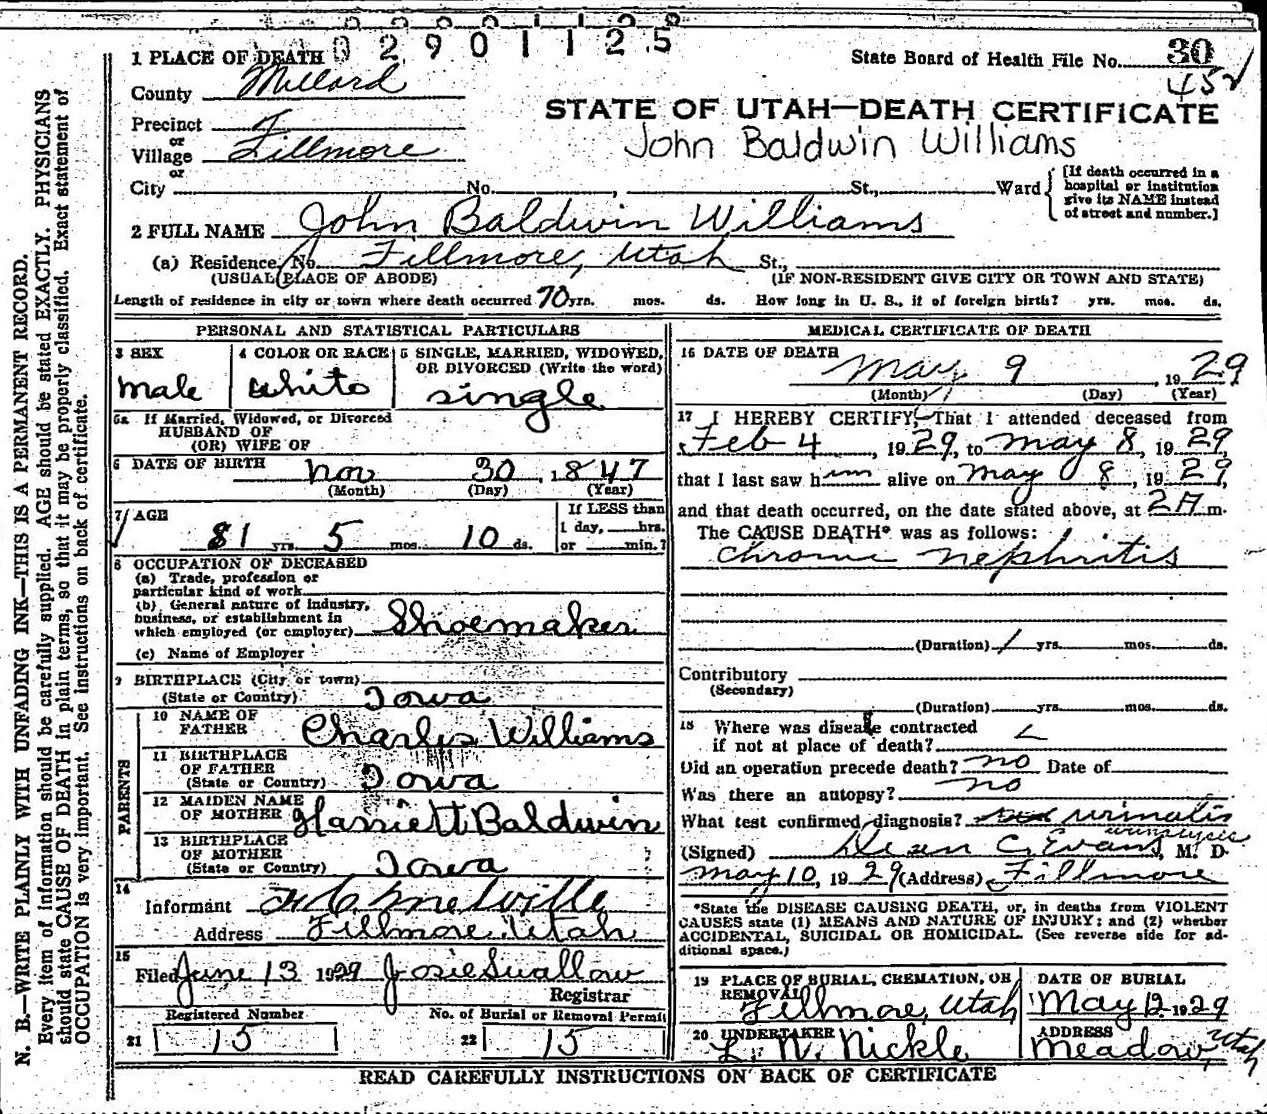 0 2 9 0 1 1 2 5
1 PLACE OF DEATH
State Board of Health File No. 30
452
County Millard
STATE OF UTAH—DEATH CERTIFICATE
Precinct
or
Village Fillmore
John Baldwin Williams
or
City No. , St., Ward
[If death occurred in a hospital or institution give its NAME instead of street and number.]
2 FULL NAME John Baldwin Williams
(a) Residence No. Fillmore, Utah St.,
(USUAL PLACE OF ABODE) (IF NON-RESIDENT GIVE CITY OR TOWN AND STATE)
Length of residence in city or town where death occurred 70 yrs. mos. ds. How long in U. S., if of foreign birth? yrs. mos. ds.
PERSONAL AND STATISTICAL PARTICULARS
3 SEX
male
4 COLOR OR RACE
white
5 SINGLE, MARRIED, WIDOWED,
OR DIVORCED (Write the word)
single
5a If Married, Widowed, or Divorced
HUSBAND OF
(OR) WIFE OF
6 DATE OF BIRTH nov 30, 1847
(Month) (Day) (Year)
7 AGE
81 yrs. 5 mos. 10 ds.
If LESS than
1 day, hrs.
or min.?
8 OCCUPATION OF DECEASED
(a) Trade, profession or
particular kind of work
(b) General nature of industry,
business, or establishment in
which employed (or employer) Shoemaker
(c) Name of Employer
9 BIRTHPLACE (City or town)
(State or Country) Iowa
PARENTS
10 NAME OF
FATHER Charles Williams
11 BIRTHPLACE
OF FATHER
(State or Country) Iowa
12 MAIDEN NAME
OF MOTHER Harriett Baldwin
13 BIRTHPLACE
OF MOTHER
(State or Country) Iowa
14
Informant Melville
Address Fillmore Utah
15
Filed June 13 1929 Josie Swallow
Registrar
Registered Number
21 15
No. of Burial or Removal Permit
22 15
MEDICAL CERTIFICATE OF DEATH
16 DATE OF DEATH
May 9, 1929
(Month) (Day) (Year)
17 I HEREBY CERTIFY, That I attended deceased from
Feb 4, 1929, to May 8, 1929,
that I last saw him alive on May 8, 1929,
and that death occurred, on the date stated above, at 2 A m.
The CAUSE DEATH* was as follows:
chronic nephritis
(Duration) 1 yrs. mos. ds.
Contributory
(Secondary)
(Duration) yrs. mos. ds.
18 Where was disease contracted
if not at place of death?
Did an operation precede death? no Date of
Was there an autopsy? no
What test confirmed diagnosis? urinalis
urinalysis
(Signed) C. Evans, M. D.
May 10, 1929 (Address) Fillmore
*State the DISEASE CAUSING DEATH, or, in deaths from VIOLENT
CAUSES state (1) MEANS AND NATURE OF INJURY; and (2) whether
ACCIDENTAL, SUICIDAL OR HOMICIDAL. (See reverse side for ad-
ditional space.)
19 PLACE OF BURIAL, CREMATION, OR
REMOVAL
Fillmore, Utah
DATE OF BURIAL
May 12 1929
20 UNDERTAKER
L. N. Nickle
ADDRESS
Meadow, Utah
READ CAREFULLY INSTRUCTIONS ON BACK OF CERTIFICATE
N. B.—WRITE PLAINLY WITH UNFADING INK—THIS IS A PERMANENT RECORD.
Every item of information should be carefully supplied. AGE should be stated EXACTLY. PHYSICIANS
should state CAUSE OF DEATH in plain terms, so that it may be properly classified. Exact statement of
OCCUPATION is very important. See instructions on back of certificate.